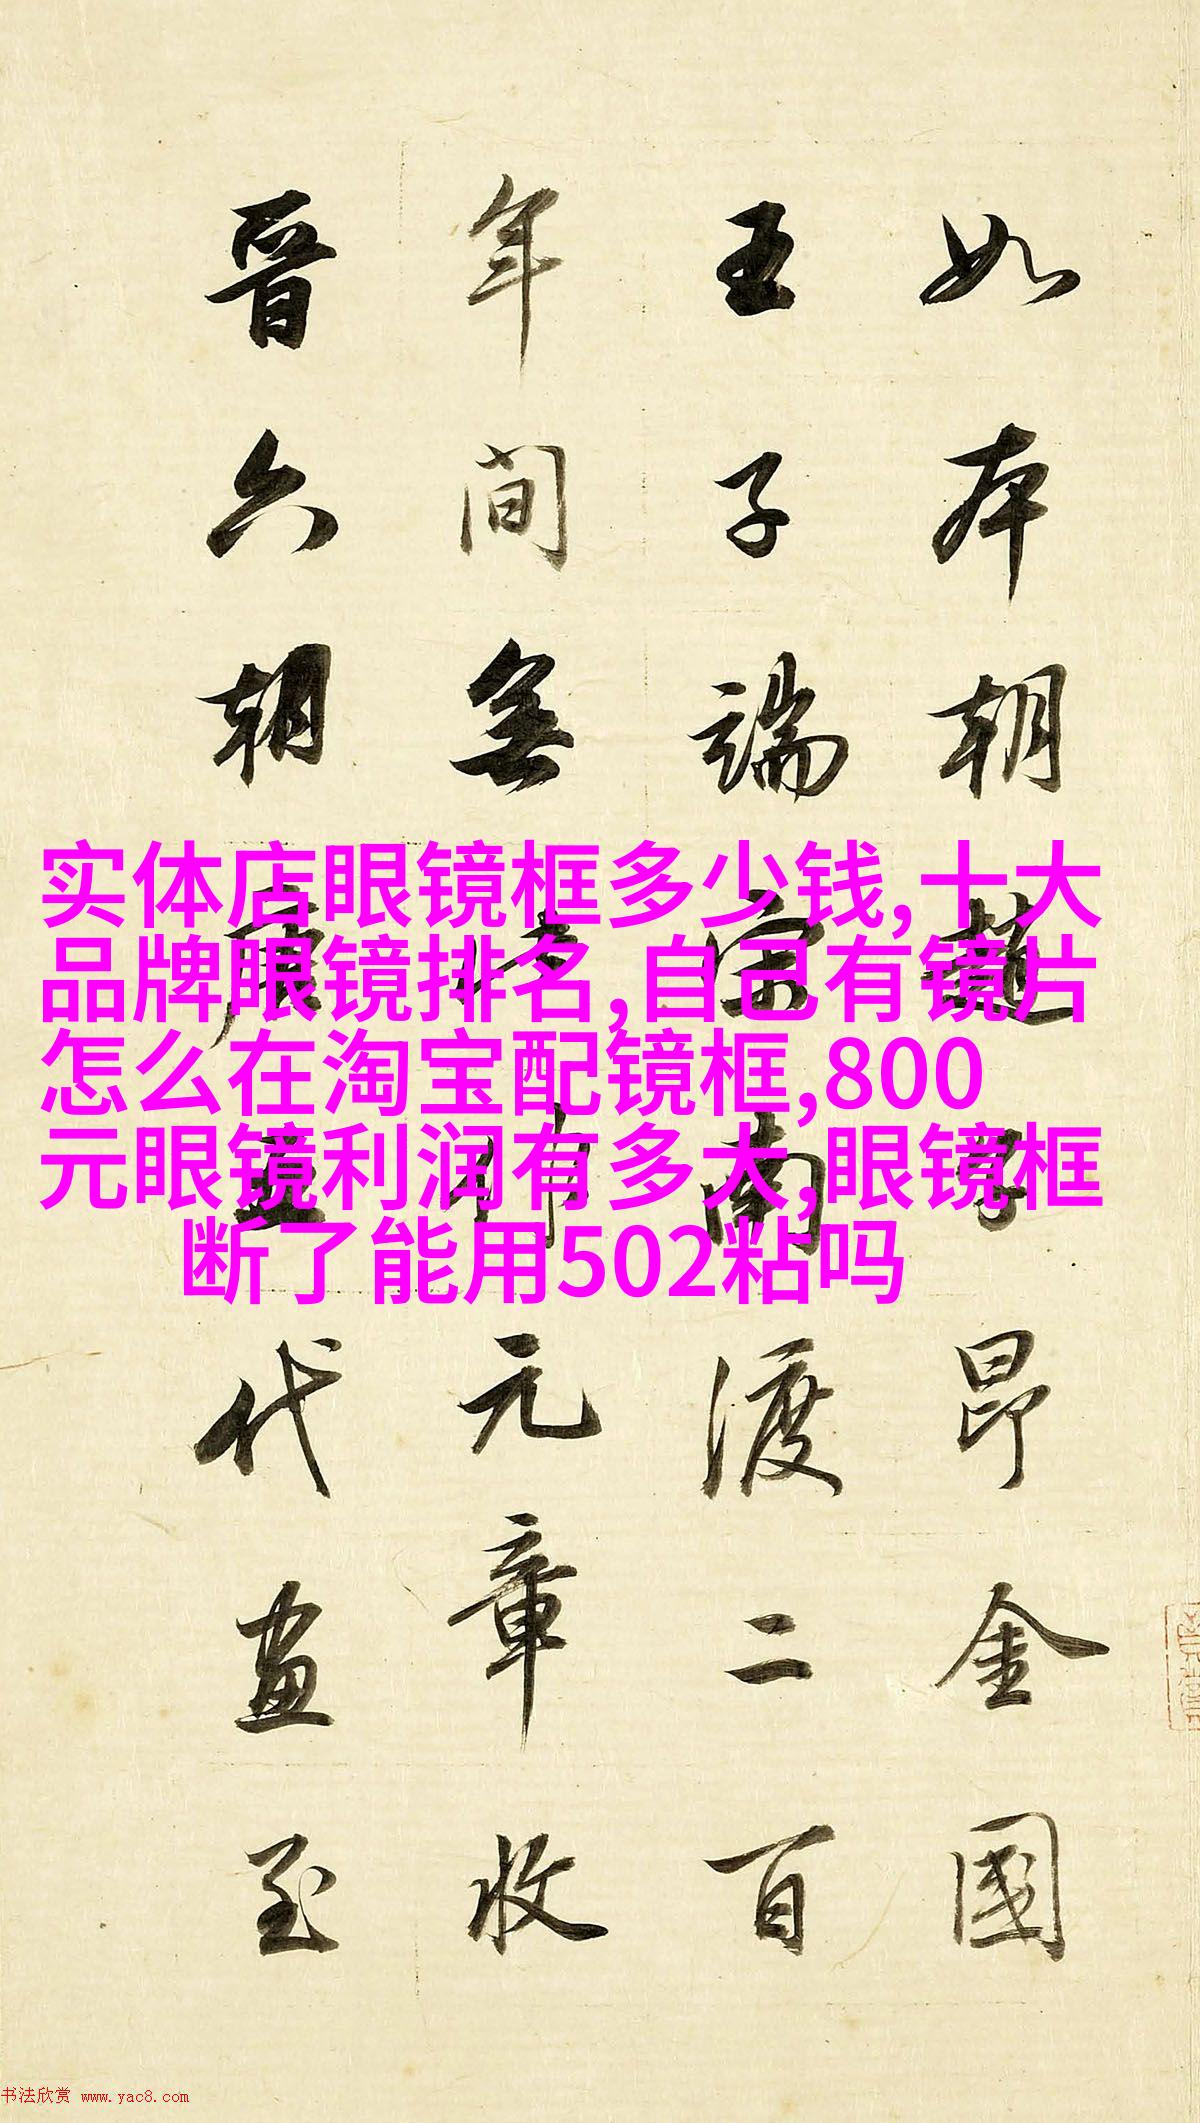 如本朝趙子昂金國
王子端宋南渡二百
年間無元章收
晉六朝唐五代畫至
实体店眼镜框多少钱,十大
品牌眼镜排名,自己有镜片
怎么在淘宝配镜框,800
元眼镜利润有多大,眼镜框
断了能用502粘吗
书法欣赏 www.yac8.com